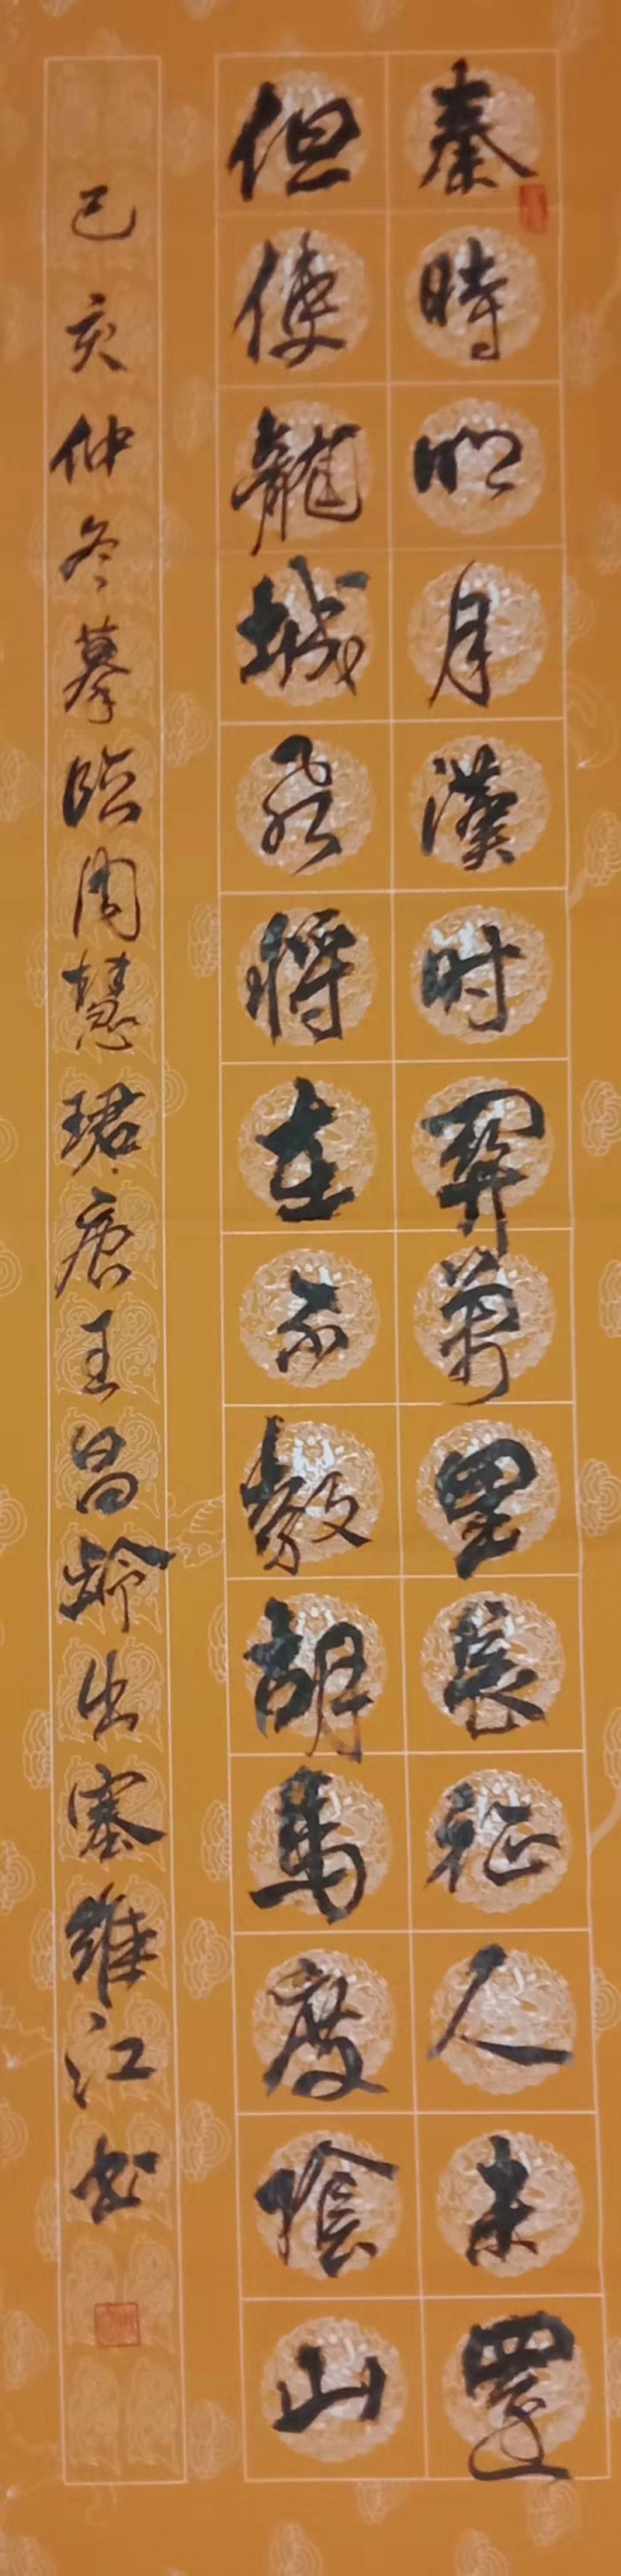 秦時明月漢时關萬里長征人未還
但使龍城飛將在不教胡馬度陰山
己亥仲冬摹臨周慧珺唐王昌龄出塞維江书